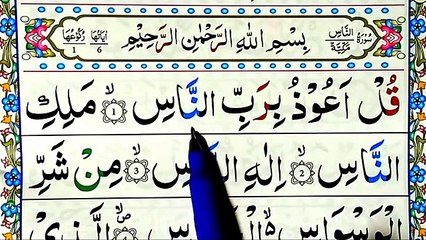 سُوْرَةُ النَّاسِ مَكِّيَّةٌ
بِسْمِ اللهِ الرَّحْمٰنِ الرَّحِيْمِ
اٰيَاتُهَا 6 رُكُوْعُهَا 1
قُلْ اَعُوْذُ بِرَبِّ النَّاسِ 1 مَلِكِ
النَّاسِ 2 اِلٰهِ النَّاسِ 3 مِنْ شَرِّ
الْوَسْوَاسِ الَّذِيْ